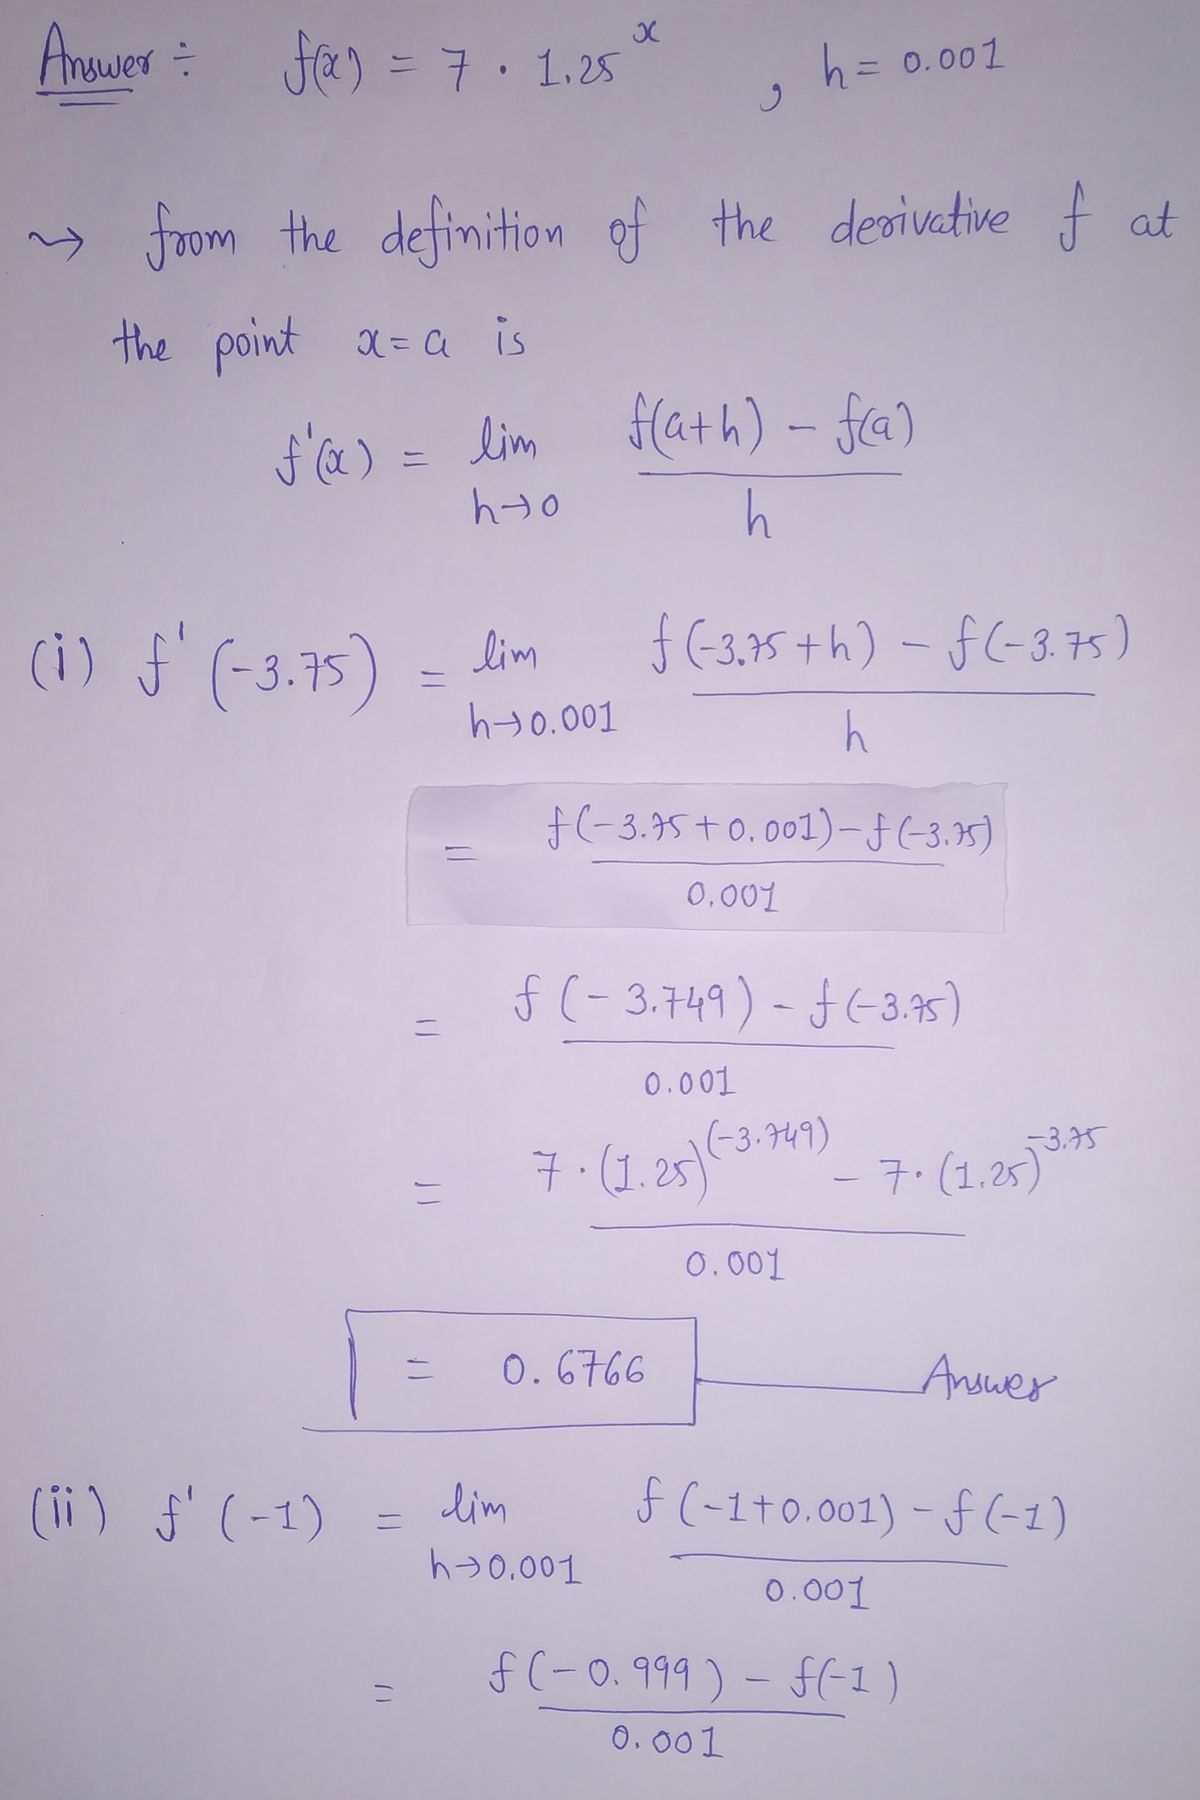 Answer ÷ f(x) = 7 · 1.25^x , h = 0.001
⤳ from the definition of the derivative f at
the point x = a is
f'(x) = lim h→0 f(a+h) − f(a) / h
(i) f'(-3.75) = lim h→0.001 f(-3.75+h) − f(-3.75) / h
= f(-3.75+0.001) − f(-3.75) / 0.001
= f(-3.749) − f(-3.75) / 0.001
= 7·(1.25)^(-3.749) − 7·(1.25)^-3.75 / 0.001
= 0.6766 Answer
(ii) f'(-1) = lim h→0.001 f(-1+0.001) − f(-1) / 0.001
= f(-0.999) − f(-1) / 0.001